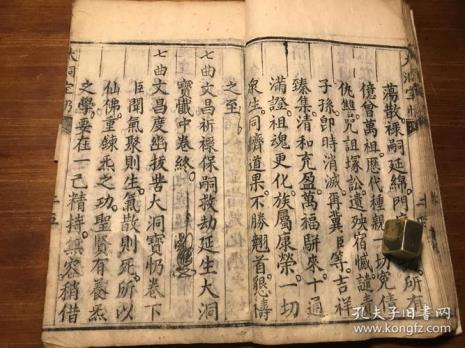 蕩散祿嗣延綿門
億曾萬祖歷代種親一切冤債
仇讐咒詛塚訟遺殃有懺謹
子孫即時消滅再冀臣等吉祥
臻集清和充盈萬福駢來十通
滿證祖魂更化族屬康榮一切
衆生同濟道果不勝翹首懇禱
之至
七曲文昌祈祿保嗣救劫延生大洞
寶懺中卷終
七曲文昌度幽拔苦大洞寶懺卷下
臣聞氣聚則生氣散則死所以
仙佛重鍊死之功聖賢有養炁
之學要在一己精持無容稍借
大洞
孔夫子旧书网
www.kongfz.com